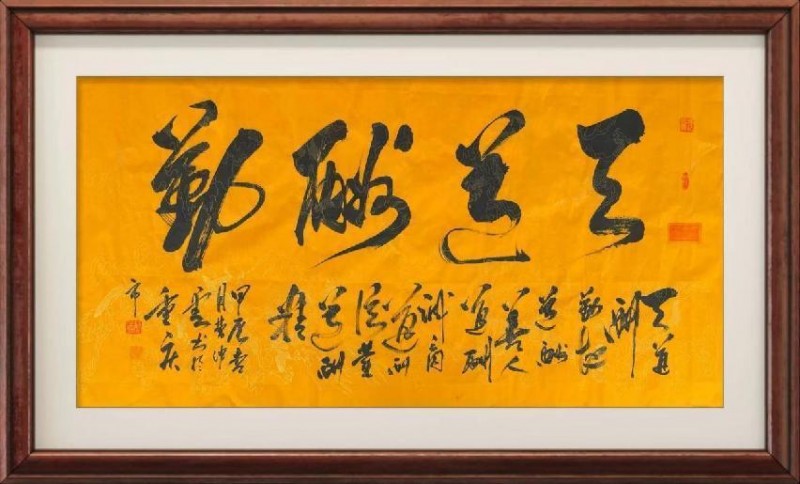 天道酬勤
天道
酬
勤地
道酬
善人
道酬
诚商
道酬
信業
道酬
精
甲辰
月
书於
重庆
市